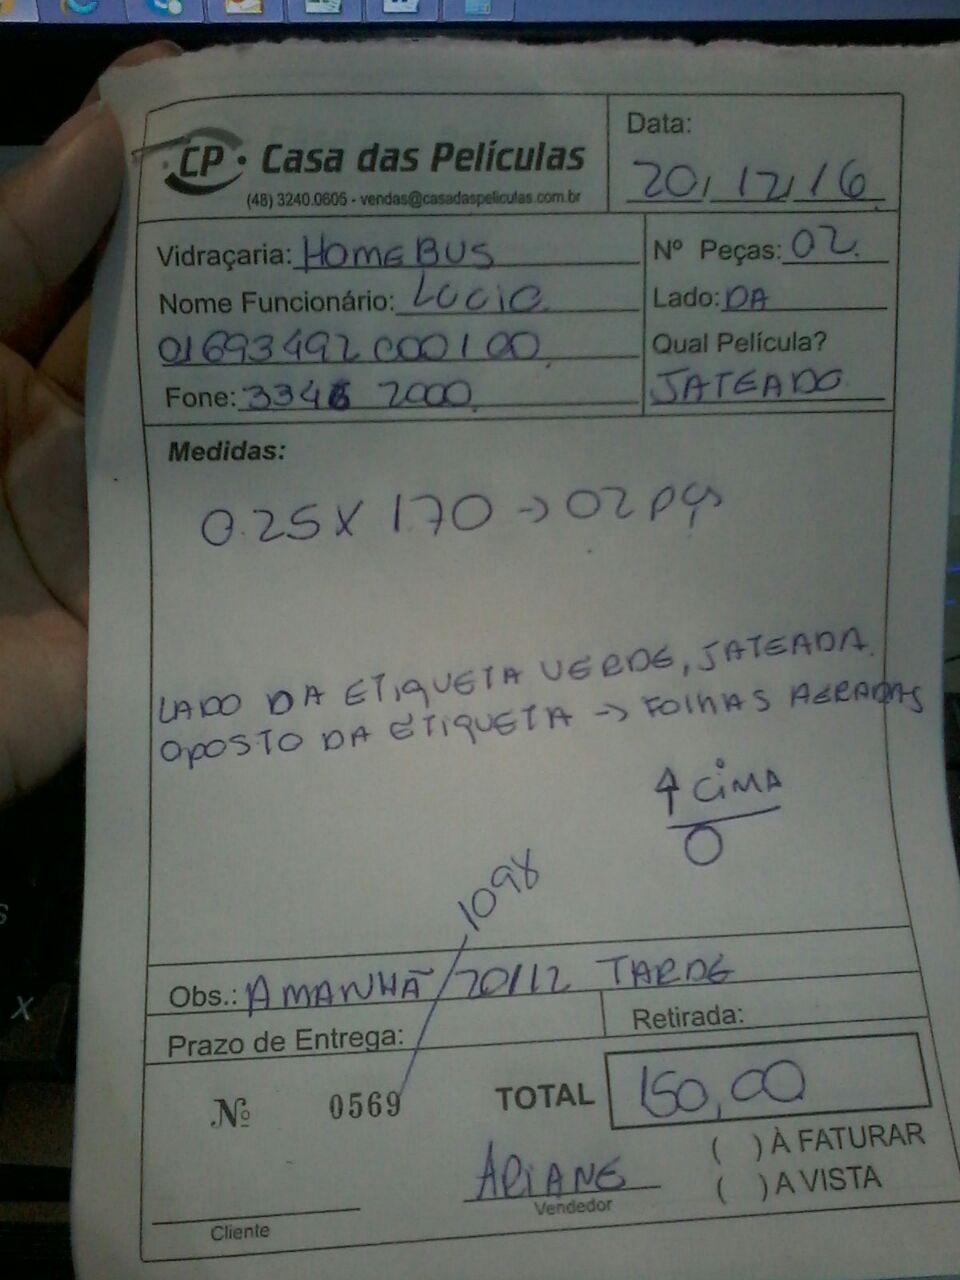 CP. Casa das Películas
(48) 3240.0605 - vendas@casadaspeliculas.com.br
Data:
20/12/16
Vidraçaria: HOMEBUS
Nº Peças: 02
Nome Funcionário: LUCIO
Lado: DA
01693492 000100
Qual Película?
JATEADO
Fone: 3346 2000
Medidas:
0.25 X 1.70 → 02 pçs
LADO DA ETIQUETA VERDE, JATEADA.
OPOSTO DA ETIQUETA → FOLHAS AGRADAS
↑ CIMA
O
1098
Obs.: AMANHÃ 20/12 TARDE
Prazo de Entrega:
Retirada:
Nº 0569
TOTAL 150,00
( ) À FATURAR
( ) A VISTA
ARIANE
Vendedor
Cliente